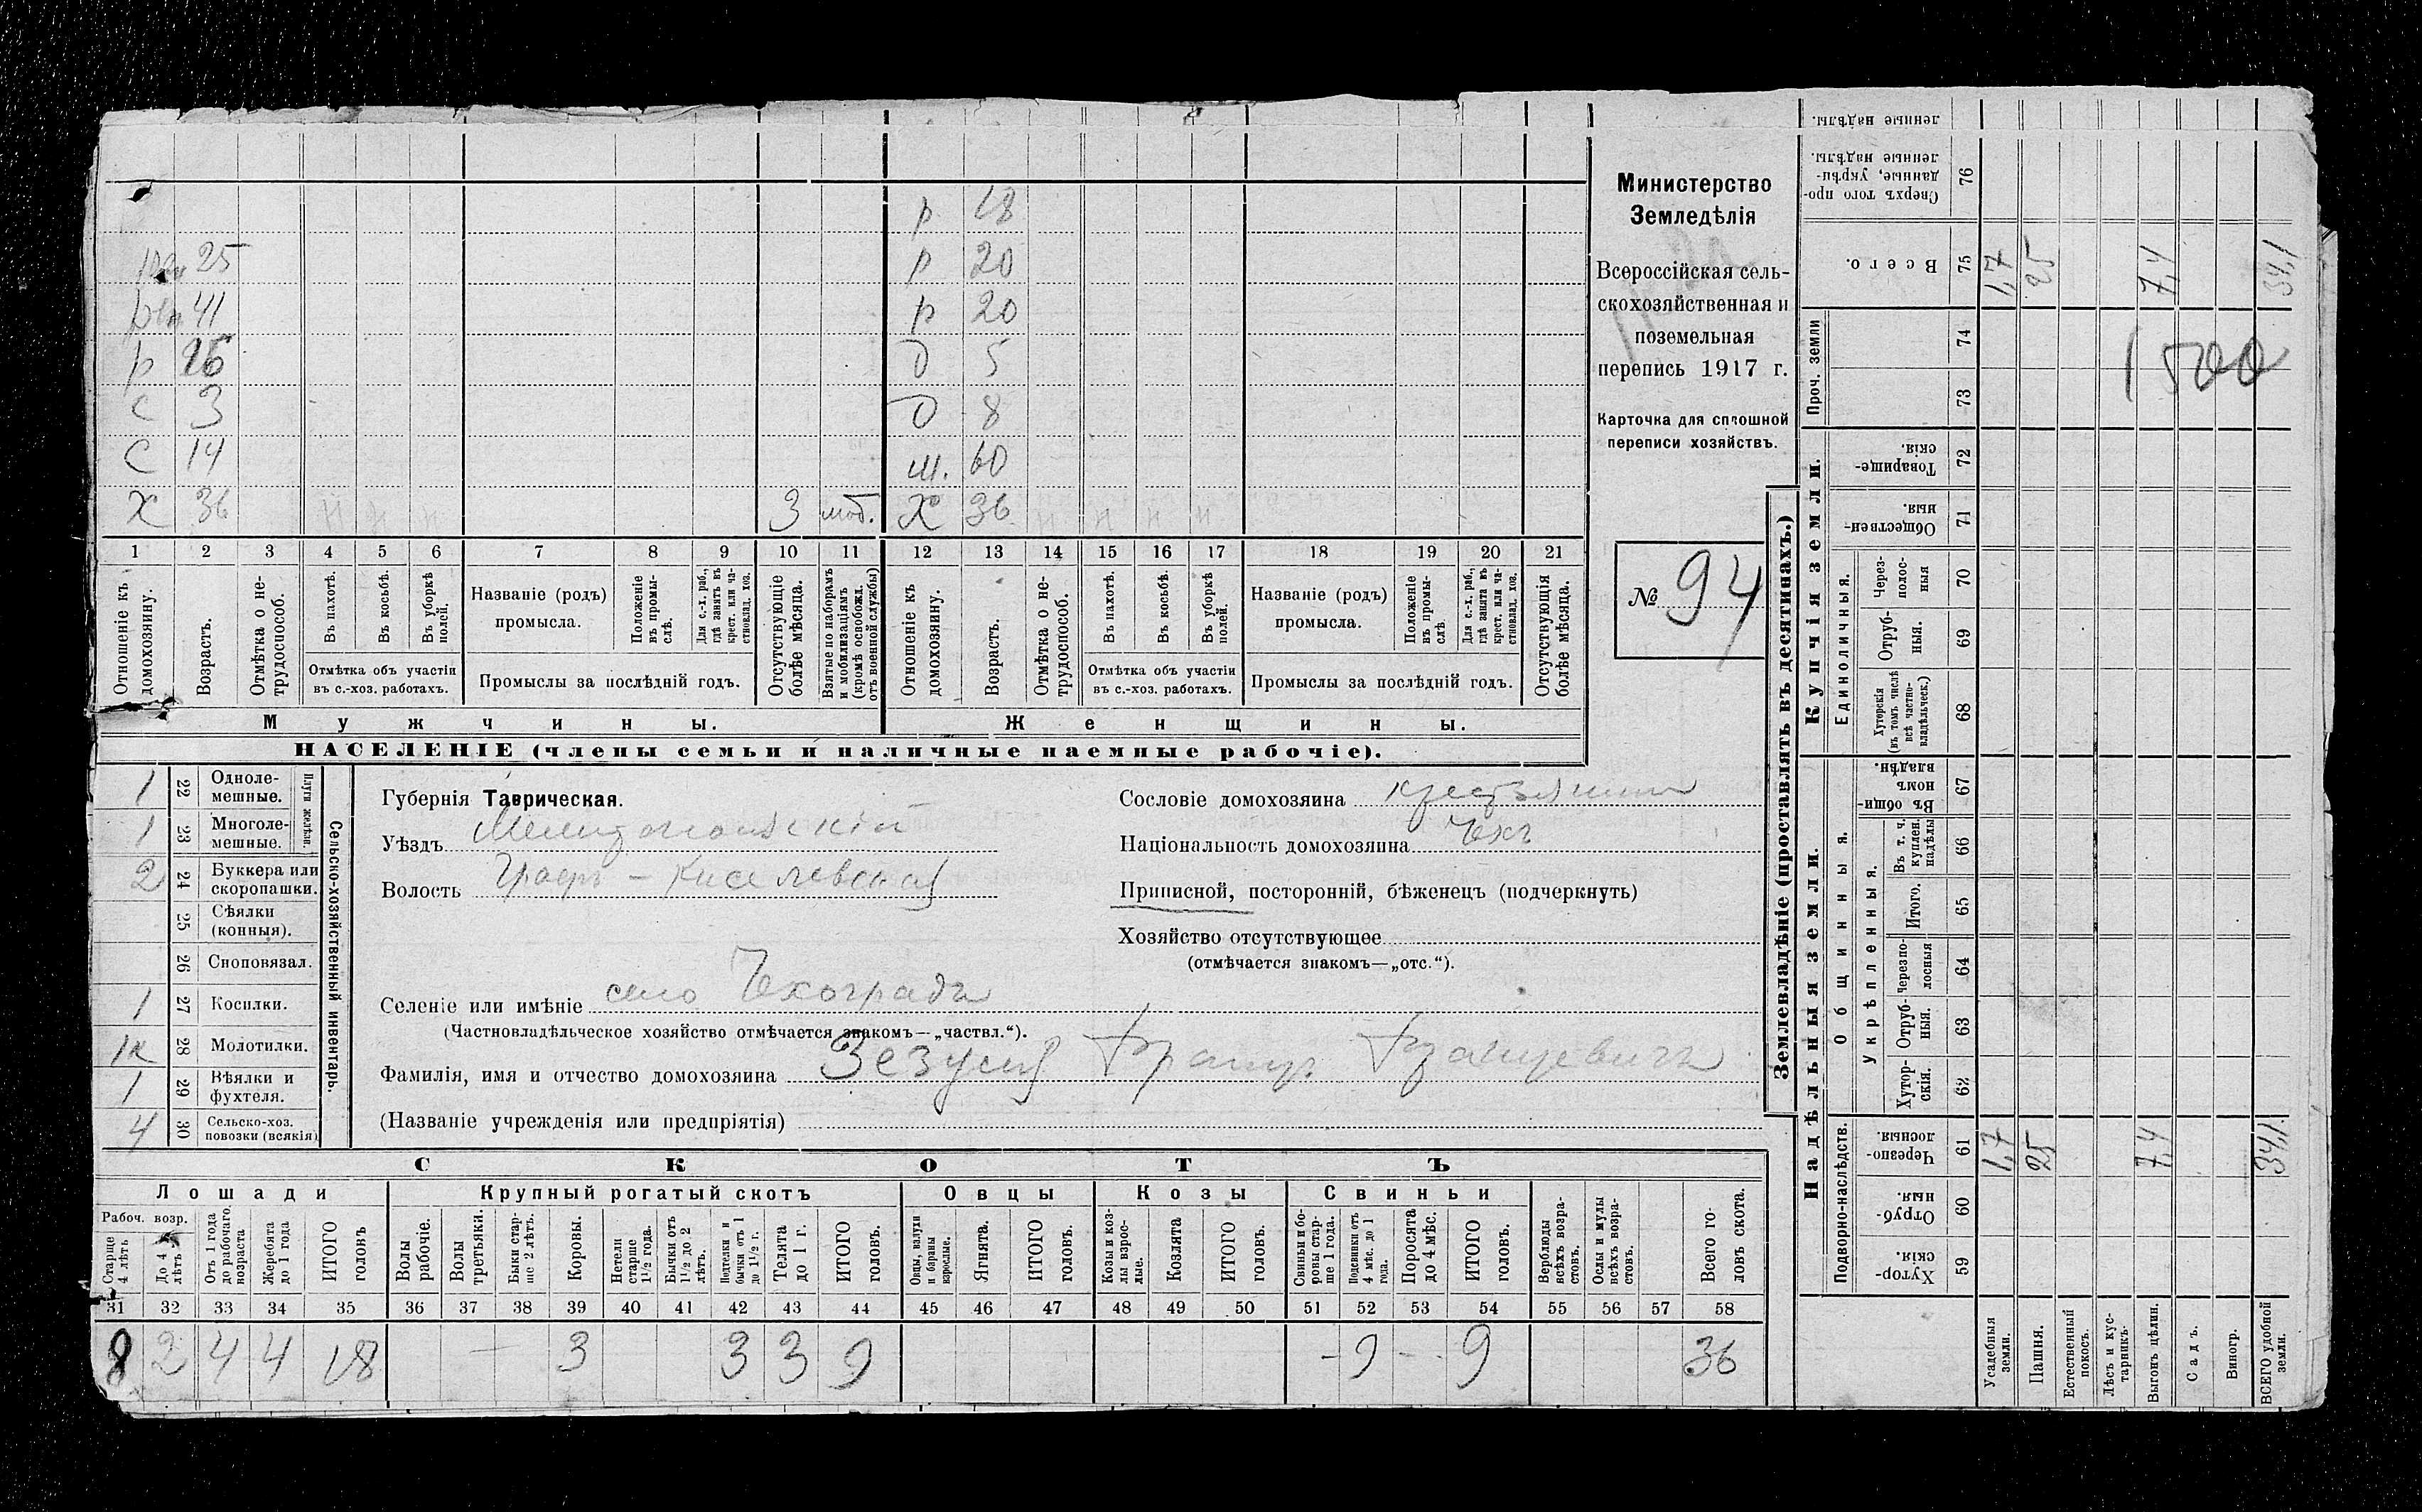 р 18
25 р 20
41 р 20
р 16 д 5
с 3 д 8
с 14 м. 60
Х 36 н н н 3 моб. Х 36 н н н н
1 2 3 4 5 6 7 8 9 10 11 12 13 14 15 16 17 18 19 20 21
Отношеніе къ домохозяину.
Возрастъ.
Отмѣтка о не-трудоспособ.
Въ пахотѣ.
Въ косьбѣ.
Въ уборкѣ полей.
Отмѣтка объ участіи въ с.-хоз. работахъ.
Названіе (родъ) промысла.
Положеніе въ промы-слѣ.
Для с.-х. раб., гдѣ занятъ въ крест. или ча-стновлад. хоз.
Промыслы за послѣдній годъ.
Отсутствующіе болѣе мѣсяца.
Взятые по наборамъ и мобилизаціямъ (кромѣ освобожд. отъ военной службы)
Отношеніе къ домохозяину.
Возрастъ.
Отмѣтка о не-трудоспособ.
Въ пахотѣ.
Въ косьбѣ.
Въ уборкѣ полей.
Отмѣтка объ участіи въ с.-хоз. работахъ.
Названіе (родъ) промысла.
Положеніе въ промы-слѣ
Для с.-х. раб., гдѣ занята въ крест. или ча-стновлад. хоз.
Промыслы за послѣдній годъ.
Отсутствующія болѣе мѣсяца.
Мужчины.
Женщины.
НАСЕЛЕНІЕ (члены семьи и наличные наемные рабочіе).
Министерство
Земледѣлія
Всероссійская сель-
скохозяйственная и
поземельная
перепись 1917 г.
Карточка для сплошной
переписи хозяйствъ.
№ 94
1 22 Одноле-мешные.
1 23 Многоле-мешные.
Плуги желѣзн.
2 24 Буккера или скоропашки.
25 Сѣялки (конныя).
26 Сноповязал.
1 27 Косилки.
1к 28 Молотилки.
1 29 Вѣялки и фухтеля.
4 30 Сельско-хоз. повозки (всякія)
Сельско-хозяйственный инвентарь.
Губернія Таврическая.
Уѣздъ Мелитопольскій
Волость Графъ-Киселевская
Селеніе или имѣніе село Чехоградъ
(Частновладѣльческое хозяйство отмѣчается знакомъ—„частвл.“).
Фамилія, имя и отчество домохозяина Францъ Францевичъ
(Названіе учрежденія или предпріятія)
Сословіе домохозяина крестьянинъ
Національность домохозяина Чехъ
Приписной, посторонній, бѣженецъ (подчеркнуть)
Хозяйство отсутствующее
(отмѣчается знакомъ—„отс.“).
СКОТЪ
Лошади
Крупный рогатый скотъ
Овцы
Козы
Свиньи
Рабоч. возр.
Старше 4 лѣтъ
До 4 лѣтъ
Отъ 1 года до рабочаго возраста
Жеребята до 1 года
ИТОГО головъ
Волы рабочіе.
Волы третьяки.
Быки стар-ше 2 лѣтъ.
Коровы.
Нетели старше 1½ года.
Бычки отъ 1½ до 2 лѣтъ.
Подтелки и бычки отъ 1 до 1½ г.
Телята до 1 г.
ИТОГО головъ.
Овцы, валухи и бараны взрослые.
Ягнята.
ИТОГО головъ.
Козы и коз-лы взрос-лые.
Козлята
ИТОГО головъ.
Свиньи и бо-ровы стар-ше 1 года.
Подсвинки отъ 4 мѣс. до 1 года.
Поросята до 4 мѣс.
ИТОГО головъ.
Верблюды всѣхъ возра-стовъ.
Ослы и мулы всѣхъ возра-стовъ.
Всего го-ловъ скота.
31 32 33 34 35 36 37 38 39 40 41 42 43 44 45 46 47 48 49 50 51 52 53 54 55 56 57 58
8 2 4 4 18 — 3 3 3 9 - 9 - 9 36
Землевладѣніе (проставлять въ десятинахъ.)
Купчія земли.
Надѣльныя земли.
ленные надѣлы.
Сверхъ того про-данные, укрѣп-ленные надѣлы. 76
Всего. 75 1,7 25 7,4 34,1
Проч. земли 74 73
1500
Товарище-скія 72
Обществен-ныя. 71
Единоличныя.
Через-полос-ныя 70
Отруб-ныя. 69
Хуторскія (въ томъ числѣ всѣ частно-владѣльческ.) 68
Общинныя.
Въ общи-номъ владѣн. 67
Укрѣпленныя.
Въ т. ч. куплен. надѣлы 66
Итого. 65
Черезпо-лосныя 64
Отруб-ныя. 63
Хутор-скія. 62
Подворно-наслѣдств.
Черезпо-лосныя 61 1,7 25 7,4 34,1.
Отруб-ныя. 60
Хутор-скія. 59
Усадебныя земли.
Пашня.
Естественный покосъ.
Лѣсъ и кус-тарникъ.
Выгонъ цѣлин.
Садъ.
Виногр.
ВСЕГО удобной земли.